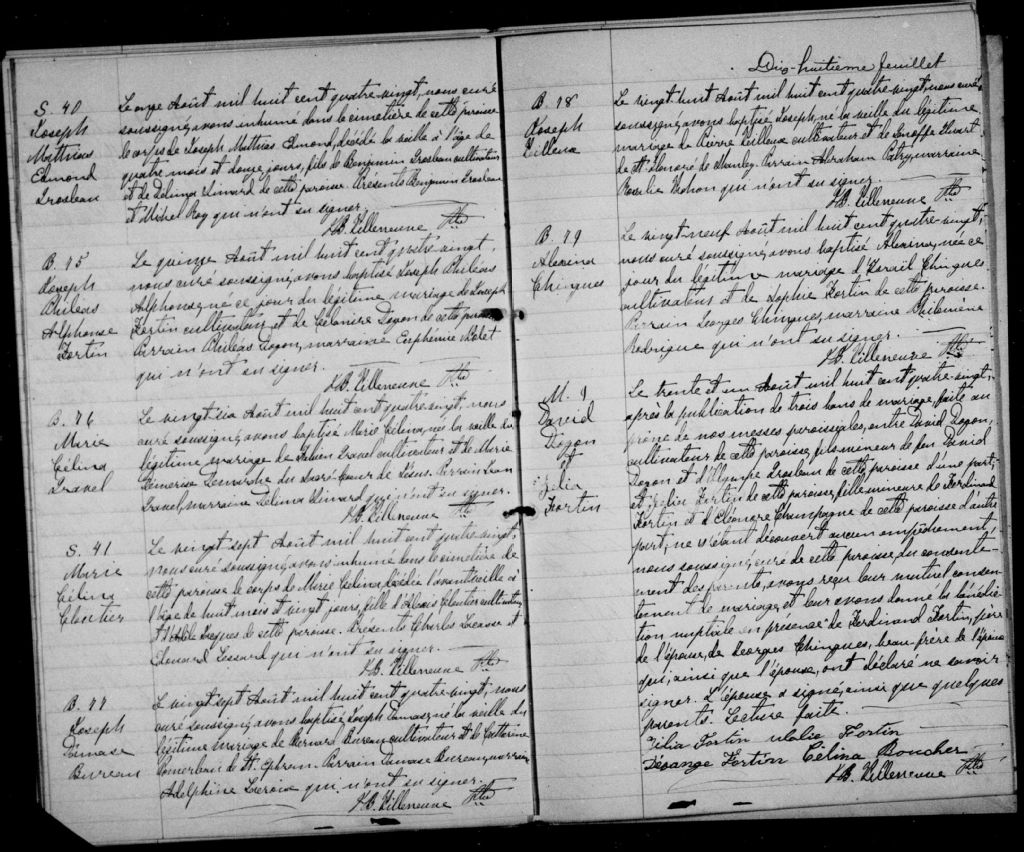 S. 40
Joseph
Mathias
Edmond
Grosleau
Le onze Août mil huit cent quatre-vingt, nous curé
soussigné, avons inhumé dans le cimetière de cette paroisse
le corps de Joseph Mathias Edmond, décédé la veille à l'âge de
quatre mois et douze jours, fils de Benjamin Grosleau cultivateur
et de Délina Simard de cette paroisse. Présents Benjamin Grosleau
et Michel Roy qui n'ont su signer.
J.B. Villeneuve Ptre
B. 75
Joseph
Philéas
Alphonse
Fortin
Le quinze Août mil huit cent quatre-vingt,
nous curé soussigné, avons baptisé Joseph Philéas
Alphonse, né ce jour du légitime mariage de Joseph
Fortin cultivateur et de Célanire Doyon de cette paroisse
Parrain Philéas Doyon, marraine Euphémie
qui n'ont su signer.
J.B. Villeneuve Ptre
B. 76
Marie
Célina
Gravel
Le vingt six Août mil huit cent quatre-vingt, nous
curé soussigné, avons baptisé Marie Célina, née la veille du
légitime mariage de Gravel cultivateur et de Marie
Démerise Lemarche du Sacré-Cœur de Jésus. Parrain Jean
Gravel, marraine Délima Simard qui n'ont su signer.
J.B. Villeneuve Ptre
S. 41
Marie
Célina
Cloutier
Le vingt sept Août mil huit cent quatre-vingt,
nous curé soussigné, avons inhumé dans le cimetière de
cette paroisse le corps de Marie Célina, décédée l'avant-veille à
l'âge de huit mois et vingt jours, fille d'Alexis Cloutier cultivateur
et d'Odile Jacques de cette paroisse. Présents Charles Lacasse et
Edouard Lessard qui n'ont su signer.
J.B. Villeneuve Ptre
B. 77
Joseph
Damase
Bureau
Le vingt sept Août mil huit cent quatre-vingt, nous
curé soussigné, avons baptisé Joseph Damase, né la veille du
légitime mariage de Bernard Bureau cultivateur et de Catherine
Pomerleau de St. Ephrem. Parrain Damase Bureau, marraine
Adelphine Lacroix qui n'ont su signer.
J.B. Villeneuve Ptre
Dix-huitième feuillet
B. 78
Joseph
Villena
Le vingt-huit Août mil huit cent quatre-vingt, nous curé
soussigné, avons baptisé Joseph, né la veille du légitime
mariage de Pierre Villena cultivateur et de
de St Honoré de Shenley. Parrain Abraham Patry, marraine
Rosalie qui n'ont su signer.
J.B. Villeneuve Ptre
B. 79
Alexina
Chingues
Le vingt-neuf Août mil huit cent quatre-vingt,
nous curé soussigné, avons baptisé Alexina, née ce
jour du légitime mariage d'Israël Chingues
cultivateur et de Sophie Fortin de cette paroisse.
Parrain Georges Chingues, marraine Philomène
Rodrigue qui n'ont su signer.
J.B. Villeneuve Ptre
M. 9
David
Doyon
et
Zélia
Fortin
Le trente et un Août mil huit cent quatre-vingt,
après la publication de trois bans de mariage, faite au
prône de nos messes paroissiales, entre David Doyon,
cultivateur de cette paroisse, fils mineur de feu David
Doyon et d'Olympe Grosleau de cette paroisse d'une part;
et Zélia Fortin de cette paroisse, fille mineure de Ferdinand
Fortin et d'Eléonore Champagne de cette paroisse d'autre
part; ne s'étant découvert aucun empêchement,
nous soussigné, curé de cette paroisse, du consente-
ment des parents, avons reçu leur mutuel consen-
tement de mariage, et leur avons donné la bénédic-
tion nuptiale en présence de Ferdinand Fortin, père
de l'épouse, de Georges Chingues, beau-frère de l'époux
qui, ainsi que l'époux, ont déclaré ne savoir
signer. L'épouse a signé, ainsi que quelques
parents. Lecture faite.
Zélia Fortin Fortin
Désange Fortin Célina Boucher
J.B. Villeneuve Ptre